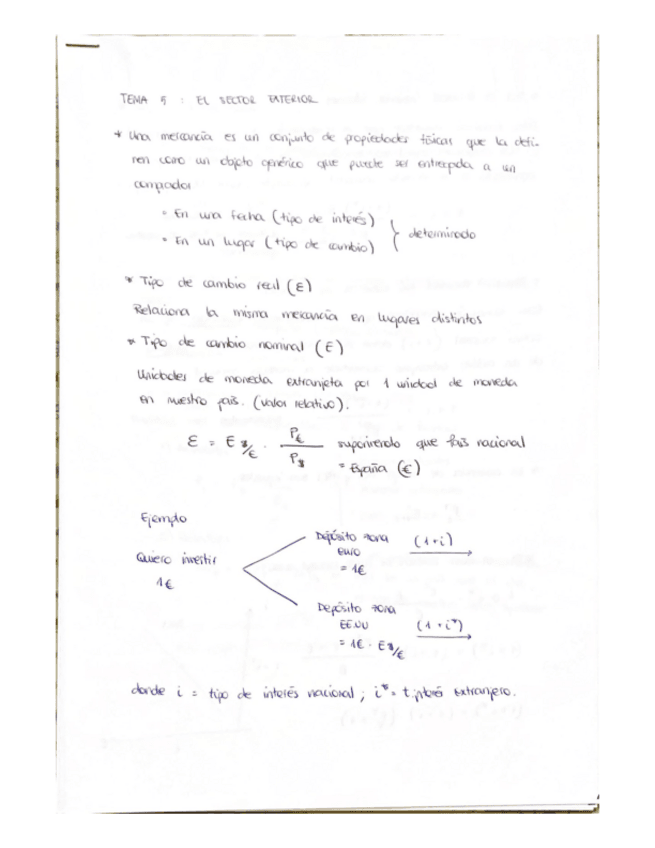 TEMA 5 : EL SECTOR EXTERIOR
* Una mercancía es un conjunto de propiedades físicas que la defi-
nen como un objeto genérico que puede ser entregada a un
comprador
· En una fecha (tipo de interés)
· En un lugar (tipo de cambio) } determinado
* Tipo de cambio real (ε)
Relaciona la misma mercancía en lugares distintos
* Tipo de cambio nominal (E)
Unidades de moneda extranjera por 1 unidad de moneda
en nuestro país. (valor relativo).
ε = E $/€ · P€ / P$ suponiendo que País nacional
= España (€)
Ejemplo
Quiero invertir
1€
Depósito zona
euro
= 1€
(1+i)
Depósito zona
EE.UU
= 1€ · E$/€
(1+i*)
donde i = tipo de interés nacional ; i* = t. interés extranjero.